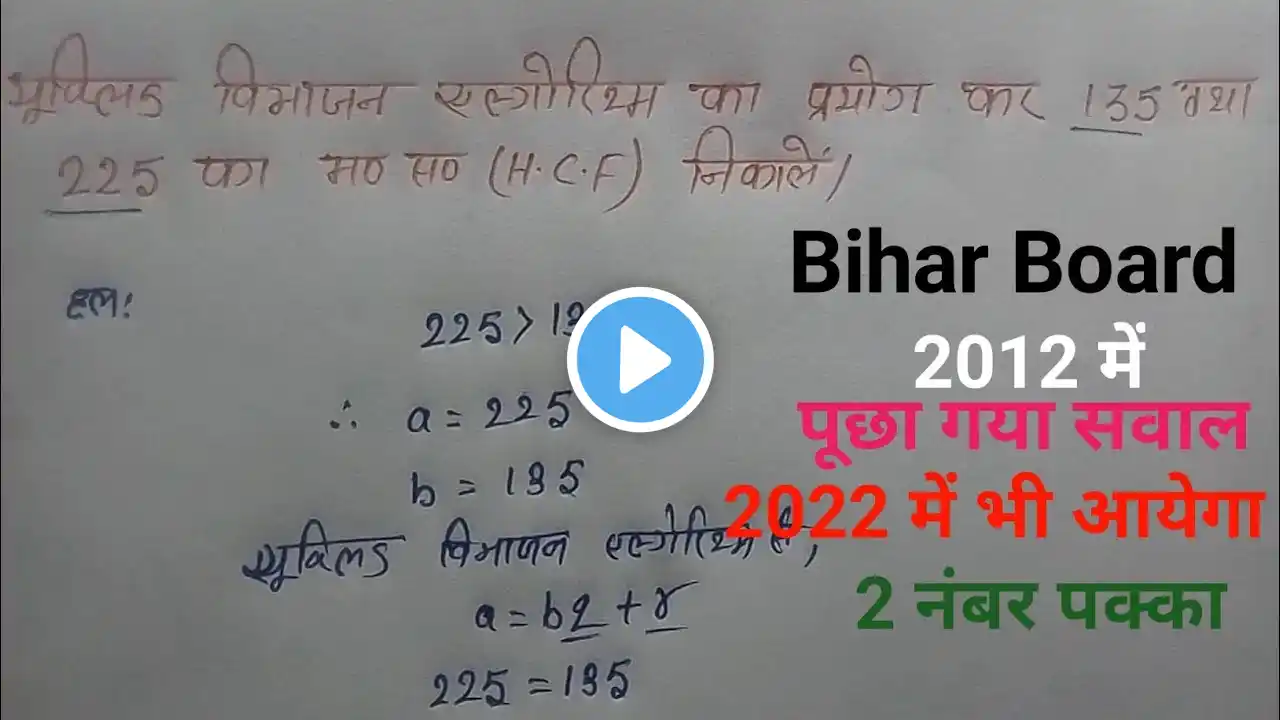 यूक्लिड विभाजन एल्गोरिथ्म का प्रयोग कर 135 तथा
225 का म० स० (H.C.F) निकालें।
Bihar Board
हल:
225 > 13
2012 में
∴ a = 225
पूछा गया सवाल
b = 135
2022 में भी आयेगा
यूक्लिड विभाजन एल्गोरिथ्म से,
2 नंबर पक्का
a = bq + r
225 = 135